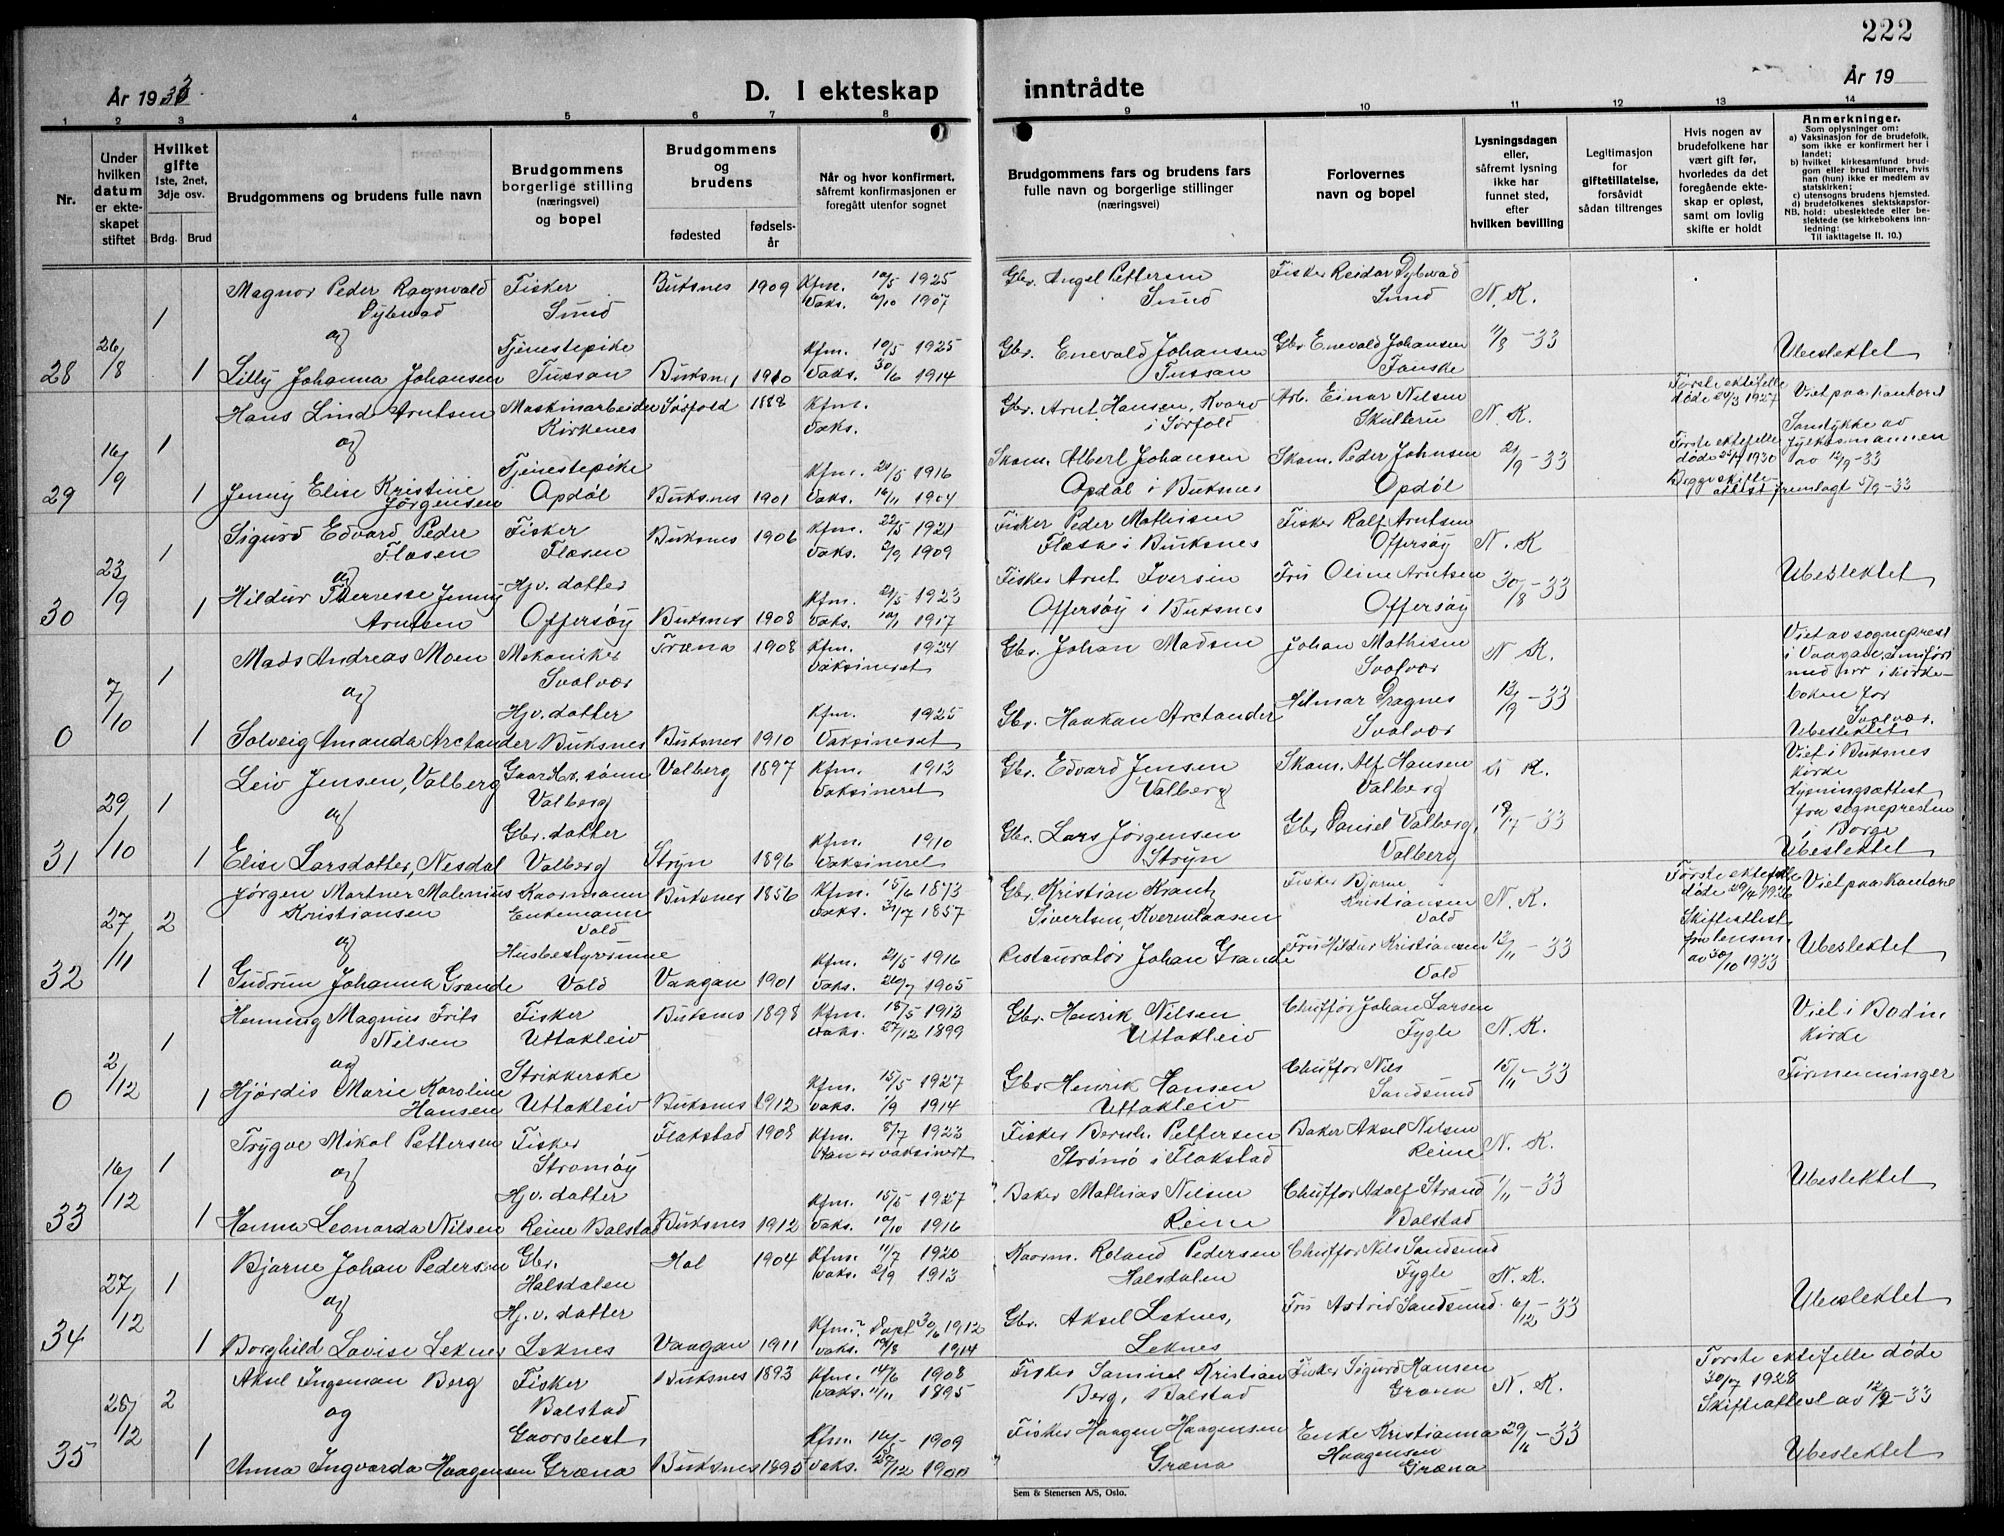 222
År 1933.
D. I ekteskap inntrådte
År 19
1 2 3 4 5 6 7 8 9 10 11 12 13 14
Nr.
Under hvilken datum er ekteskapet stiftet
Hvilket gifte 1ste, 2net, 3dje osv.
Brdg. Brud
Brudgommens og brudens fulle navn
Brudgommens borgerlige stilling (næringsvei) og bopel
Brudgommens og brudens
fødested
fødselsår
Når og hvor konfirmert, såfremt konfirmasjonen er foregått utenfor sognet
Brudgommens fars og brudens fars fulle navn og borgerlige stillinger (næringsvei)
Forlovernes navn og bopel
Lysningsdagen eller, såfremt lysning ikke har funnet sted, efter hvilken bevilling
Legitimasjon for giftetillatelse, forsåvidt sådan tiltrenges
Hvis nogen av brudefolkene har vært gift før, hvorledes da det foregående ekteskap er opløst, samt om lovlig skifte er holdt
Anmerkninger.
Som oplysninger om:
a) Vaksinasjon for de brudefolk, som ikke er konfirmert her i landet;
b) hvilket kirkesamfund brudgom eller brud tilhører, hvis han (hun) ikke er medlem av statskirken;
c) utensogns brudens hjemsted.
d) brudefolkenes slektskapsforhold: ubeslektede eller beslektede (se kirkebokens innledning:
NB. Til iakttagelse II. 10.)
1 Magnor Peder Ragnvald Dybwad Fisker Sund Buksnes 1909 Kfm. 10/5 1925 Vaks. 1907 Gbr. Angel Pettersen Sund Fisker Reidar Dybwad Sund N. K.
og
28 26/8 1 Lilly Johanna Johansen Tjenestepike Tussan Buksnes 1910 Kfm. 10/5 1925 Vaks. 30/6 1914 Gbr. Enevald Johansen Tussan Gbr Enevald Johansen Fauske 11/8-33 Ubeslektet
1 Hans Lind Arntsen Maskinarbeider Kirkenes Sørfold 1888 Kfm. Vaks. Gbr. Arnt Hansen, Kvarv i Sørfold Arb. Einar Nilsen Skulteru N. K. Første ektefelle døde 24/3 1927 Viet paa kontoret
og
29 16/9 1 Jenny Elise Kristine Jörgensen Tjenestepike Opdøl Buksnes 1901 Kfm. 21/5 1916 Vaks. 16/11 1904 Skom. Albert Johansen Opdøl i Buksnes Skom. Peder Johnsen Opdøl 2/9-33 Første ektefelle døde 1930 Begge skifteattest fremlagt 5/9-33 Samtykke av fylkesmannen av 12/9-33
1 Sigurd Edvard Peder Flæsen Fisker Flæsen Buksnes 1906 Kfm. 22/5 1921 Vaks. 2/9 1909 Fisker Peder Mathisen Flæsa i Buksnes Fisker Ralf Arntsen Offersøy N. K
og
30 23/9 1 Hildur Therresse Jenny Arntsen Hjv. datter Offersøy Buksnes 1908 Kfm. 21/5 1923 Vaks. 10/11 1917 Fisker Arnt Iversen Offersøy i Buksnes Fru Oline Arntsen Offersøy 30/8-33 Ubeslektet
1 Mads Andreas Moen Mekaniker Svolvær Træna 1908 Kfm. 1924 Vaksineret Gbr. Johan Madsen Johan Mathisen Svolvær N K. Viet av sogneprest i Vaagan. Innført med nr i kirkeboken for Svolvær.
og
0 7/10 1 Solveig Amanda Arctander Hjv. datter Buksnes Buksnes 1910 Kfm. 1925 Vaksineret Gbr. Haakan Arctander Hilmar Dragnes Svolvær 13/9-33 Ubeslektet
1 Leiv Jensen, Valberg Gaardbr. sønn Valberg Valberg 1897 Kfm. 1913 Vaksineret Gbr. Edvard Jensen Valberg Skom. Alf Hansen Valberg N K. Viet i Buksnes kirke Lysningsattest fra sognepresten i Borge
og
31 29/10 1 Elise Larsdatter, Nesdal Gbr. datter Valberg Stryn 1896 Kfm. 1910 Vaksineret Gbr. Lars Jørgensen Stryn Gbr Daniel Valberg, Valberg 18/7-33 Ubeslektet
2 Jørgen Martner Malenius Kristiansen Kaarmann Enkemann Vold Buksnes 1856 Kfm. 15/6 1873 Vaks. 1857 Gbr. Kristian Krantz Sivertsen, Kvernlaasen Fisker Bjarne Kristiansen Vold N. K. Første ektefelle døde 29/4 1926 Viet paa kontoret
og
32 27/11 1 Gudrun Johanna Grande Husbestyrerinne Vold Vaagan 1901 Kfm. 21/5 1916 Vaks. 20/7 1905 Restauratør Johan Grande Fru Hildur Kristiansen Vold 12/11-33 Skifteattest fra lensm. av 30/10 1933 Ubeslektet
1 Henning Magnus Frits Nilsen Fisker Uttakleiv Buksnes 1898 Kfm. 18/5 1913 Vaks. 27/12 1899 Gbr. Henrik Nilsen Uttakleiv Chuffør Johan Larsen Fygle N. K. Viet i Bodin kirke
og
0 2/12 1 Hjørdis Marie Karoline Hansen Strikkerske Uttakleiv Buksnes 1912 Kfm. 15/5 1927 Vaks. 1/9 1914 Gbr Henrik Hansen Uttakleiv Chuffør Nils Sandsund 15/11-33 Firmenninger
1 Trygve Mikal Pettersen Fisker Strømøy Flakstad 1908 Kfm. 8/7 1923 Han er vaksinert Fisker Bernh. Pettersen Strømø i Flakstad Baker Aksel Nilsen Reine N. K.
og
33 16/12 1 Hanna Leonarda Nilsen Hjv. datter Reine Balstad Buksnes 1912 Kfm. 15/5 1927 Vaks. 10/10 1916 Baker Mathias Nilsen Reine Chuffør Adolf Strand Balstad 1/11-33 Ubeslektet
1 Bjarne Johan Pedersen Gbr. Halsdalen Hol 1904 Kfm. 11/7 1920 Vaks. 2/9 1913 Kaarm. Roland Pedersen Halsdalen Chuffør Nils Sandsund Fygle N. K.
og
34 27/12 1 Borghild Lovise Leknes Hj.v. datter Leknes Vaagan 1911 Kfm.? Døpt 30/6 1912 Vaks. 19/8 1914 Gbr. Aksel Leknes, Leknes Fru Astrid Sandsund. 6/12-33 Ubeslektet
2 Aksel Ingeman Berg Fisker Balstad Buksnes 1893 Kfm. 14/6 1908 Vaks. 11/11 1895 Fisker Samuel Kristian Berg, Balstad Fisker Sigurd Hansen Græna N. K. Første ektefelle døde 30/7 1928 Skifteattest av 12/9-33
og
35 28/12 1 Anna Ingvarda Haagensen Gaarsbest. Græna Buksnes 1895 Kfm. 16/5 1909 Vaks. 1900 Fisker Haagen Haagensen Græna Enke Kristianna Haagensen Græna 29/11-33 Ubeslektet
Sem & Stenersen A/S, Oslo.